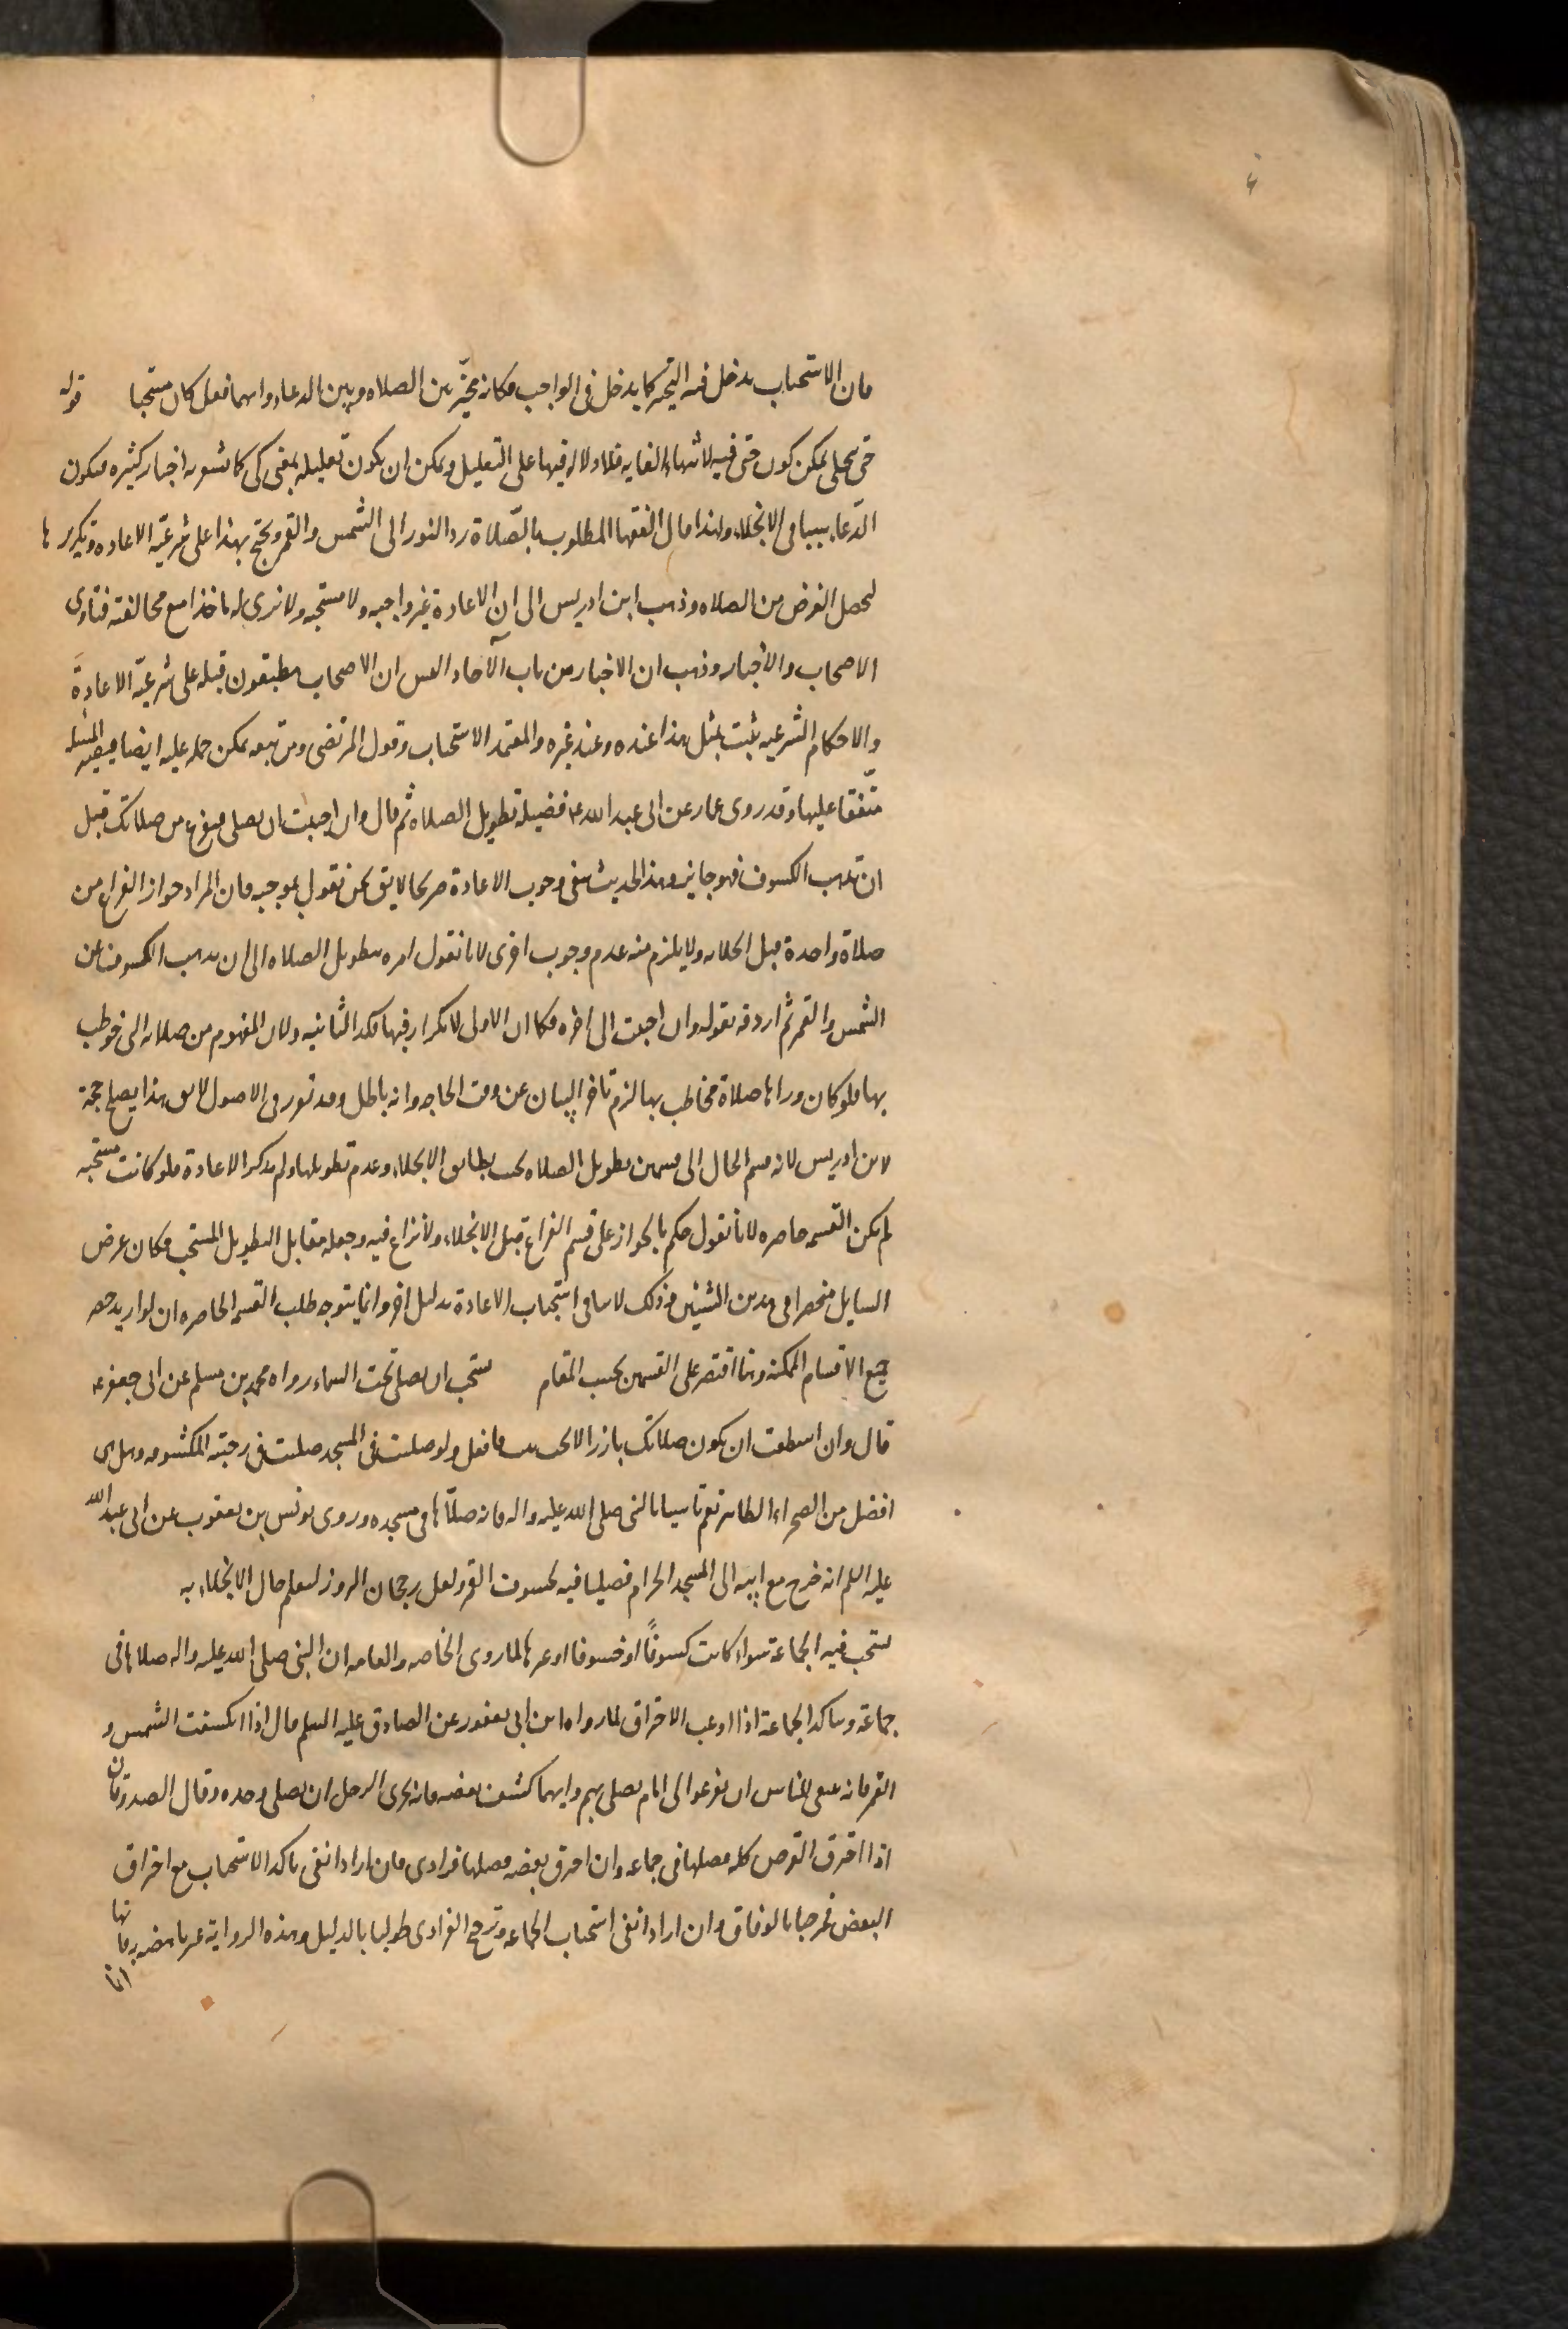 فان الاستحباب يدخل فيه التخيير كما يدخل فى الواجب فكانه مخيّر بين الصلاه وبين الدعاء وايهما فعل كان مستحبا قوله
حتى ينجلى يمكن كون حتى فيه لانتهاء الغايه فلا دلاله فيها على التعليل ويمكن ان يكون تعليليه بمعنى كى كما تشعر به اخبار كثيره فيكون
الدّعاء سببا فى الانجلاء ولهذا قال الفقها المطلوب بالصّلاة رد النور الى الشمس والقمر ويحتج بهذا على شرعيّه الاعاده وتكررها
ليحصل الغرض من الصلاه وذهب ابن ادريس الى ان الاعادة غير واجبه ولا مستحبه ولا نرى له ماخذا مع مخالفته فتاوى
الاصحاب والاخبار وذهب ان الاخبار من باب الآحاد اليس ان الاصحاب مطبقون قبله على شرعيّه الاعادة
والاحكام الشرعيه تثبت بمثل هذا عنده وعند غيره والمعتمد الاستحباب وقول المرتضى ومن تبعه يمكن حمله عليه ايضا فيصير المسئله
متّفقا عليها وقد روى عمار عن ابى عبد الله ع فضيلة تطويل الصلاه ثم قال وان احببت ان تصلى فتفرغ من صلاتك قبل
ان يذهب الكسوف فهو جايز وهذا الحديث ينفى وجوب الاعادة صريحا لا يق نحن نقول بموجبه فان المراد جواز الفراغ من
صلاة واحدة قبل انجلائه ولا يلزم منه عدم وجوب اخرى لانا نقول امره بتطويل الصلاه الى ان يذهب الكسوف عن
الشمس والقمر ثم اردفه بقوله وان احببت الى اخره فكما ان الاولى لا تكرار فيها فكذا الثانيه ولان المفهوم من صلاته التى خوطب
بها فلو كان وراها صلاة مخاطب بها لزم تاخر البيان عن وقت الحاجه وانه باطل وقد تقرر فى الاصول لا يق هذا يصلح حجة
لابن ادريس لانه قسم الحال الى قسمين تطويل الصلاه بحيث يطابق الانجلاء وعدم تطويلها ولم يذكر الاعادة فلو كانت مستحبه
لم يكن القسمه حاصره لانا نقول حكم بالجواز على قسم الفراغ قبل الانجلاء ولا نزاع فيه وجعله مقابل التطويل المستحب فكان غرض
السايل منحصرا فى هذين الشيئين فذلك لا ينافى استحباب الاعادة بدليل اخر وانما يتوجه طلب القسمه الحاصره ان لو اريد حصر
جميع الاقسام الممكنه وهنا اقتصر على القسمين بحسب المقام يستحب ان يصلى تحت السماء رواه محمد بن مسلم عن ابى جعفر ع
قال وان استطعت ان يكون صلاتك بارزا لا يجنك بيت فافعل ولو صليت فى المسجد صليت فى رحبته المكشوفه وهل هى
افضل من الصحراء الظاهر نعم تاسيا بالنبى صلى الله عليه واله فانه صلّاها فى مسجده وروى يونس بن يعقوب عن ابى عبد الله
عليه السلم انه خرج مع ابيه الى المسجد الحرام فصليا فيه لخسوف القمر ولعل رجحان البروز ليعلم حال الانجلاء به
يستحب فيه الجماعة سواء كانت كسوفًا او خسوفا او غيرها لما روى الخاصه والعامه ان النبى صلى الله عليه واله صلاها فى
جماعة ويتاكد الجماعة اذا اوعب الاحتراق لما رواه ابن ابى يعفور عن الصادق عليه السلم قال اذا انكسفت الشمس و
القمر فانه ينبغى للناس ان يفزعوا الى امام يصلى بهم وايهما كشف بعضه فانه يجزى الرجل ان يصلى وحده وقال الصدوقان
اذا احترق القرص كله فصلها فى جماعه وان احترق بعضه فصلها فرادى فان ارادا نفى تاكد الاستحباب مع احتراق
البعض فمرحبا بالوفاق وان ارادا نفى استحباب الجماعه وترجيح الفرادى طولبا بالدليل وهذه الرواية غير ناهضه به فانها
انما